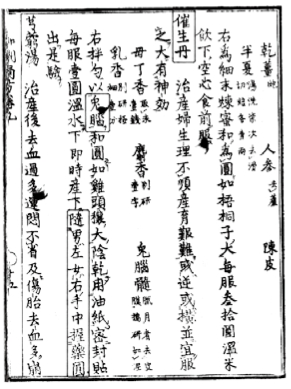 乾薑炮 人參去蘆 陳皮
半夏
右為細末煉蜜和為圓如梧桐子大每服叁拾圓溫米
飲下空心食前服
催生丹 治產婦生理不順產育艱難或逆或橫並宜服
之大有神効
母丁香取末壹錢 麝香別研壹字 兔腦髓臘月者去皮膜研如泥
乳香別研細壹分
右拌勻以兔腦和圓如雞頭穰大陰乾用油紙密封貼
每服壹圓溫水下即時產下隨男左女右手中握藥圓
出是驗
芎藭湯 治產後去血過多運悶不省及傷胎去血多崩